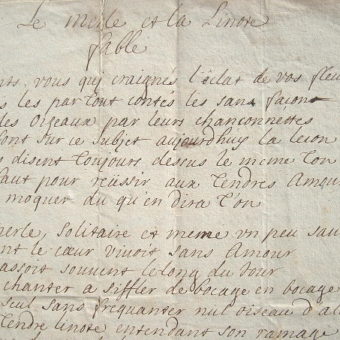 Le Merle et la Linote
fable
vous qui craignés l'éclat de vos
les par tout contés les sans façons
les oizeaux par leurs chansonnettes
font sur ce subjet aujourdhuy la lecon
disent Toujours dessus le meme Ton
faut pour reüssir aux Tendres Amour
moquer du qu'en dira t'on
merle, solitaire et meme un peu sau
le cœur vivoit sans Amour
passoit souvent le long du Jour
chanter a siffler de bocage en bocage
seul sans frequanter nul oiseau d'al
Tendre linote entendant son ramage